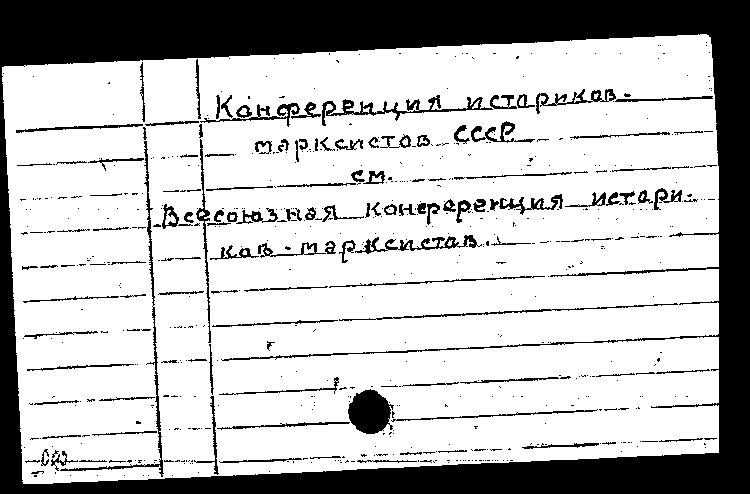 Конференция историков-
марксистов СССР
см.
Всесоюзная конференция истори-
ков-марксистов.